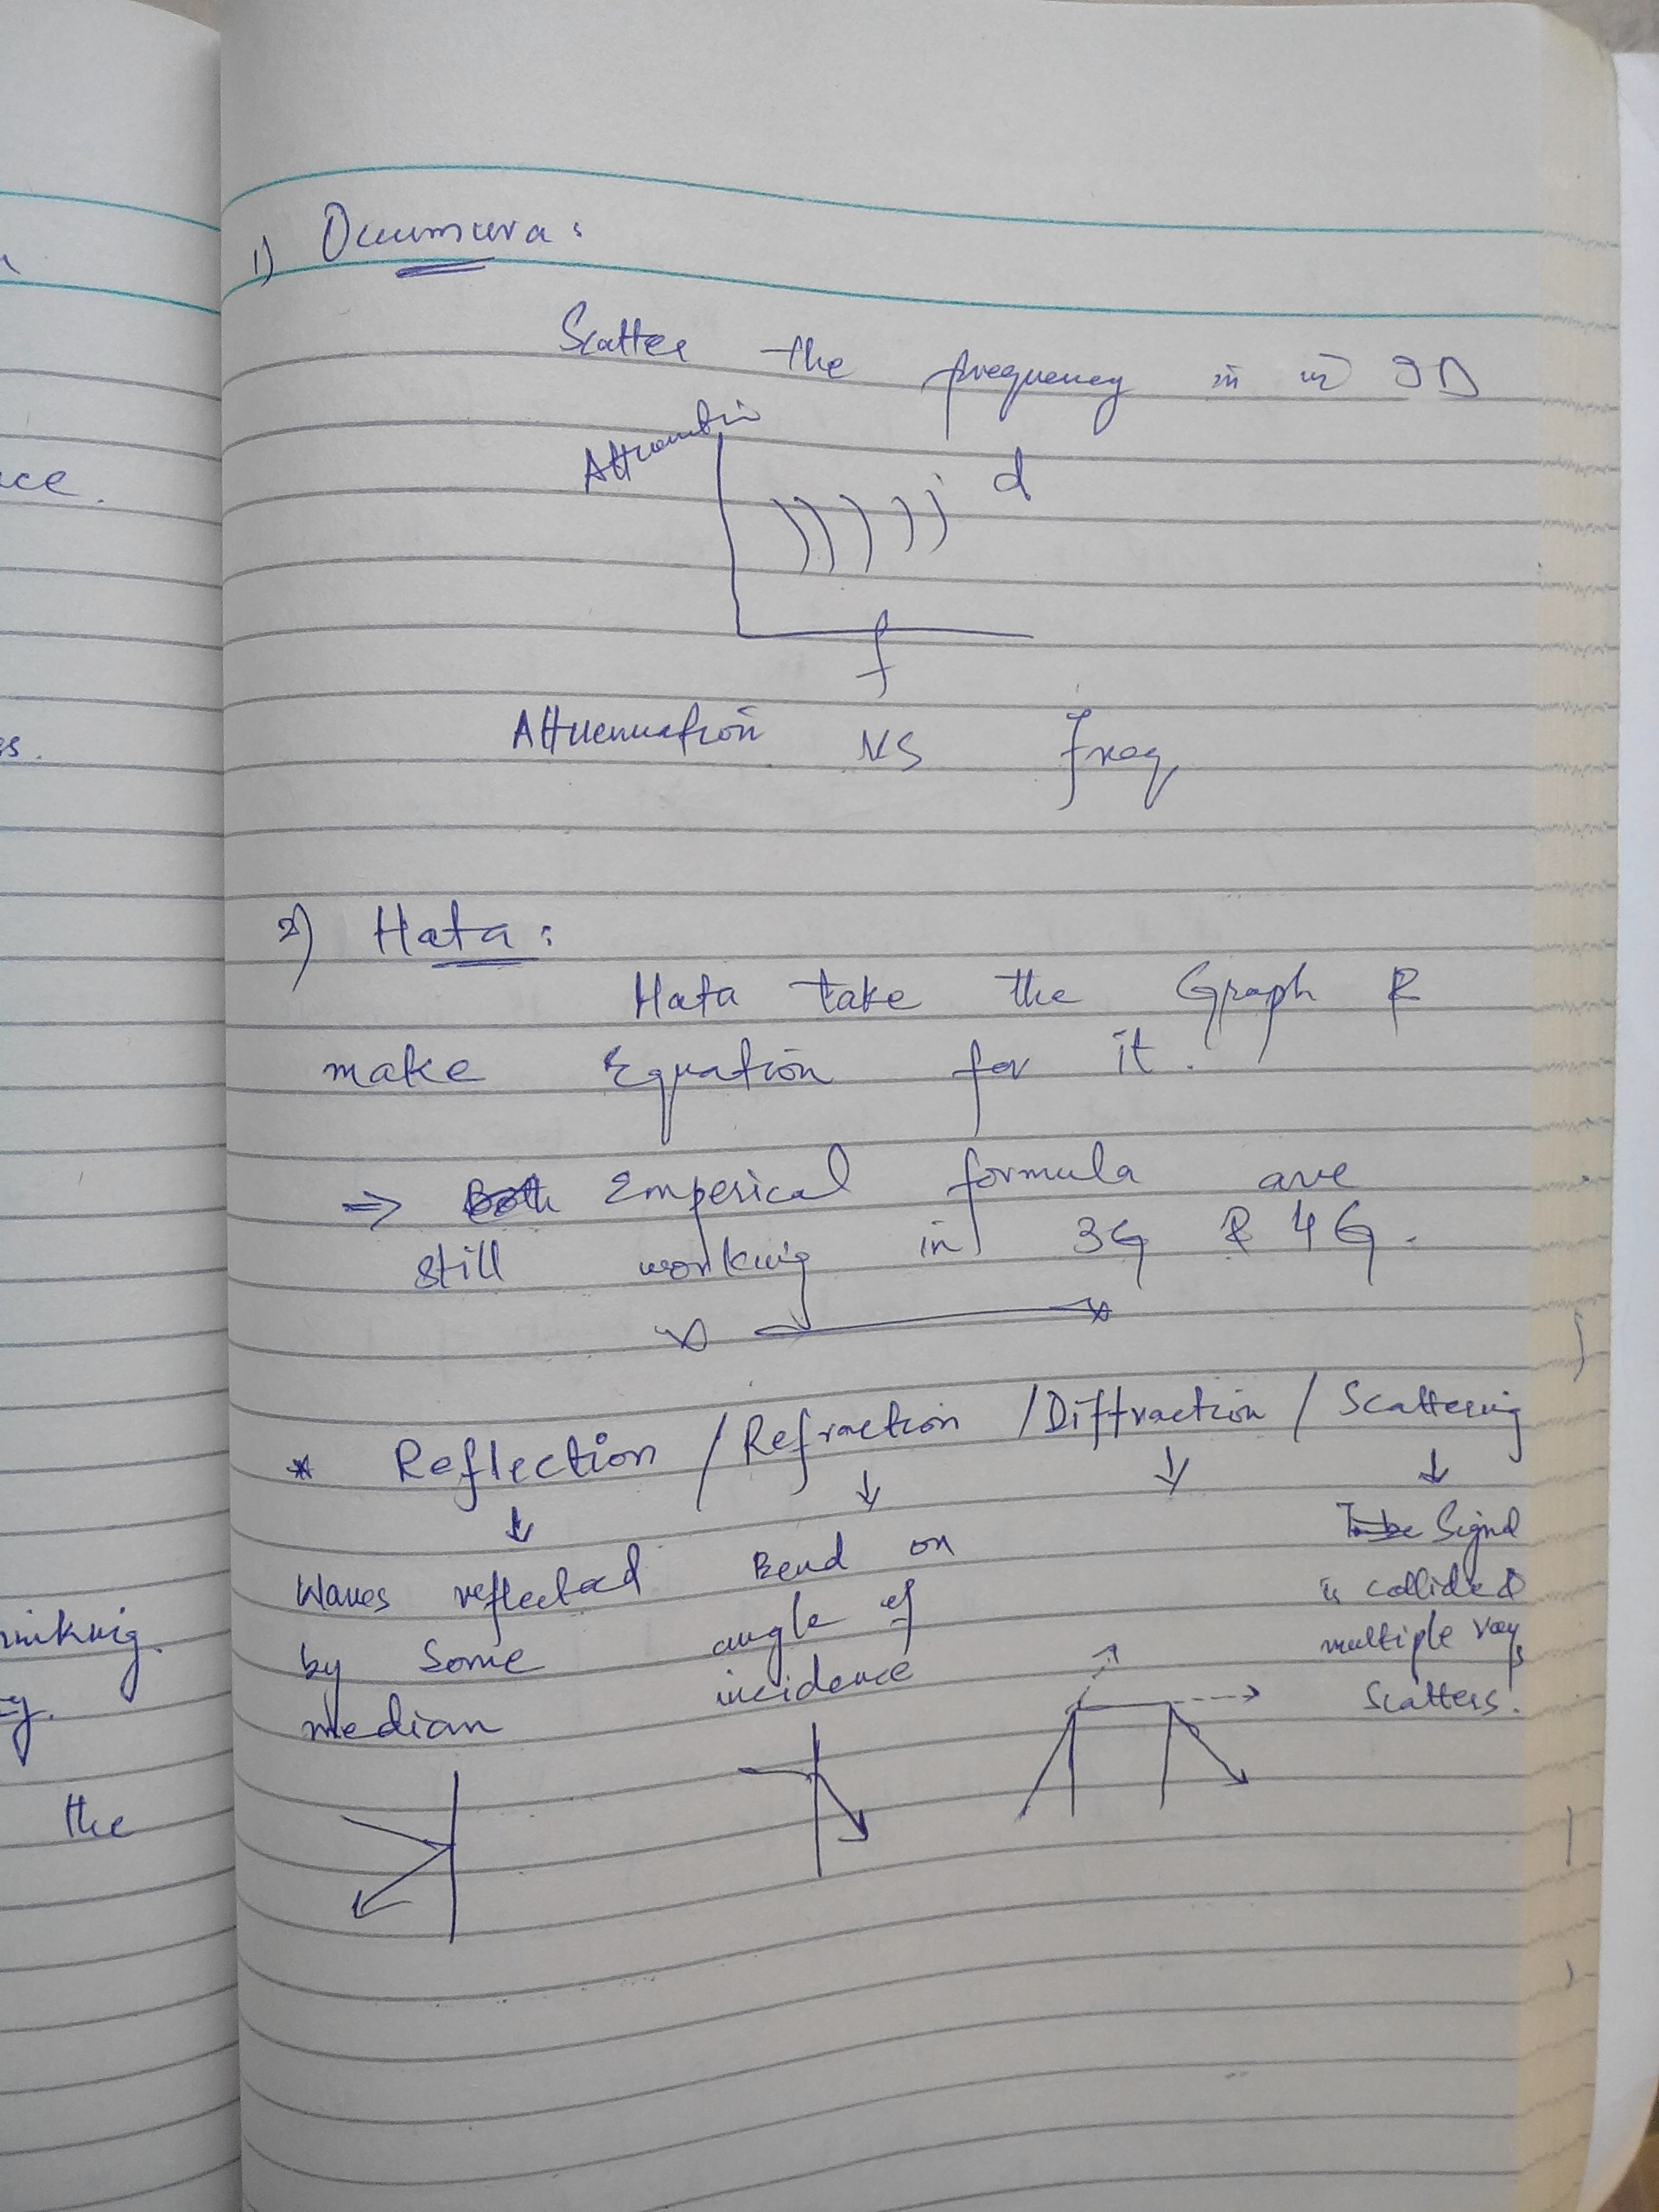 1) Ocuumura:
Scatter the frequency in in 3D
d
f
Attuenuation VS freq
2) Hata:
Hata take the Graph &
make Equation for it.
⇒ Both Emperical formula are
still working in 3G & 4G.
* Reflection / Refraction / Diffraction / Scattering
↓ ↓ ↓ ↓
Waves reflected
by Some
median
Bend on
angle of
incidence
To be Signal
is collide &
multiple rays
Scatters.
ace.
the